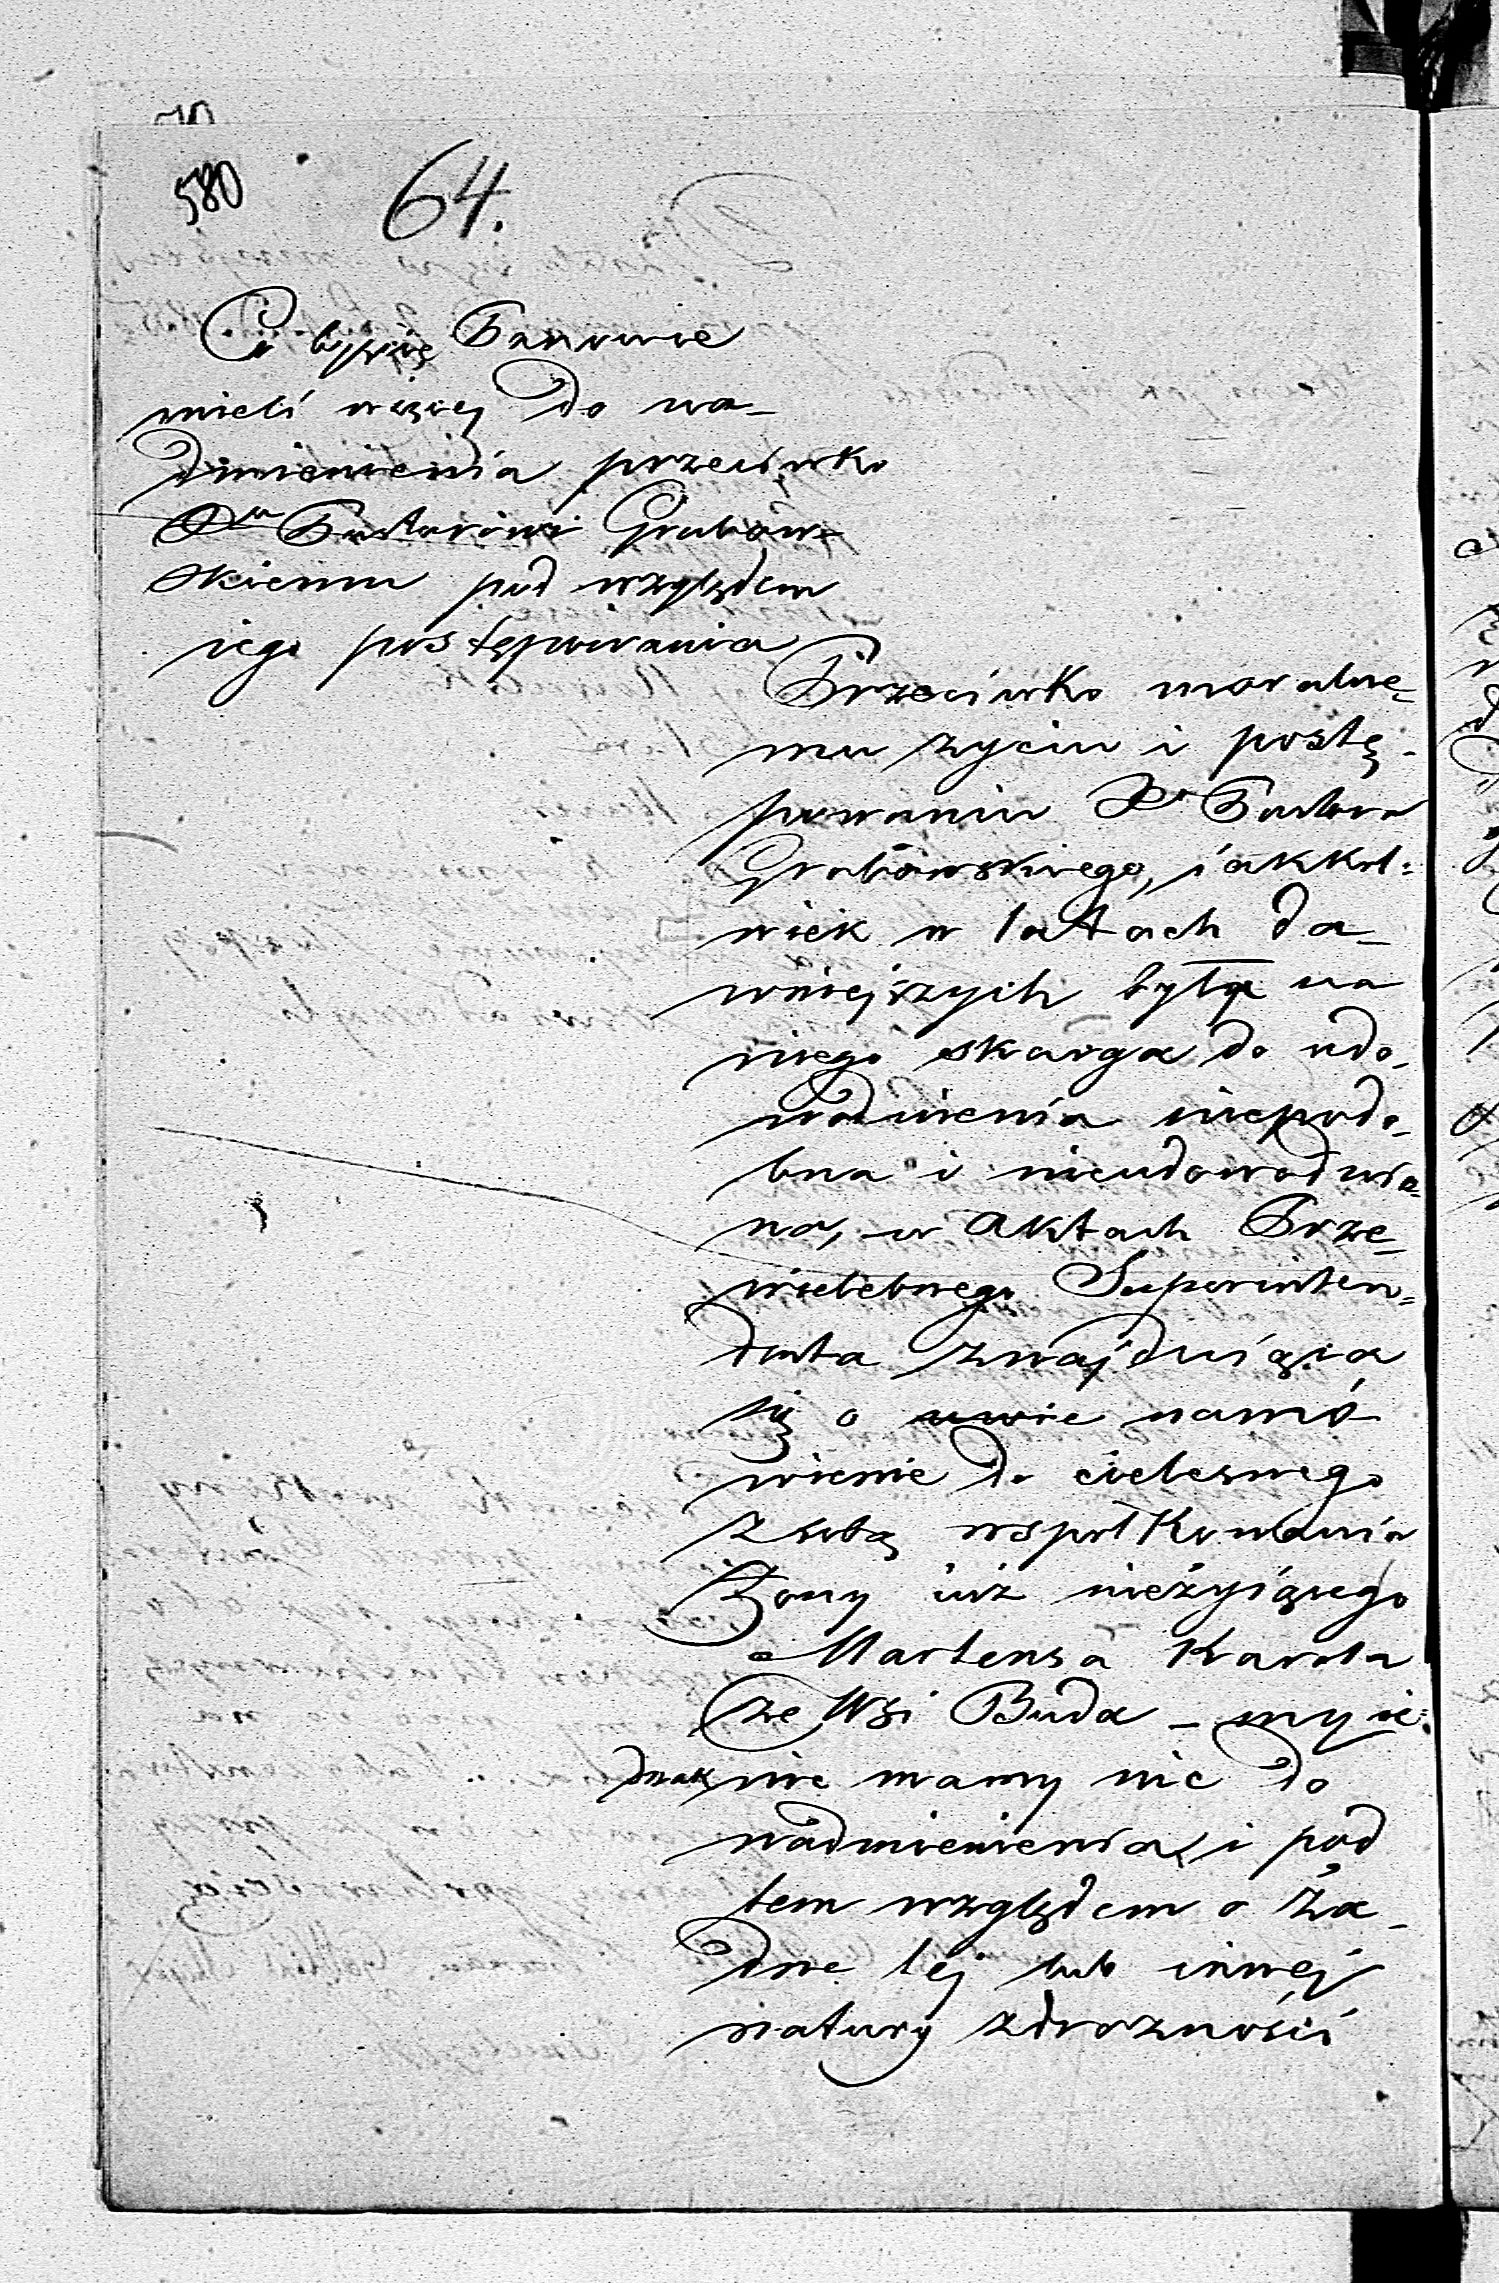 580
64.
Co byście Panowie
mieli więcej do na-
dmienienia przeciwko
Xu Pastorowi Grabow-
skiemu pod względem
iego postępowania
Przeciwko moralne-
mu życiu i postę-
powaniu Xa Pastora
Grabowskiego, iakkol-
wiek w latach da-
wniejszych była na
niego skarga do udo-
wodnienia niepodo-
bna i nieudowodnio-
na, w aktach Prze-
wielebnego Superinten-
denta znajduiąca
się o namó
wienie do cielesnego
z sobą współkowania
Żony iuż nieżyiącego
Martensa Karola
ze Wsi Buda - my ie-
dnak nie mamy nic do
nadmienienia, i pod
tem względem o ża-
dne tej lub innej
natury zdrożności